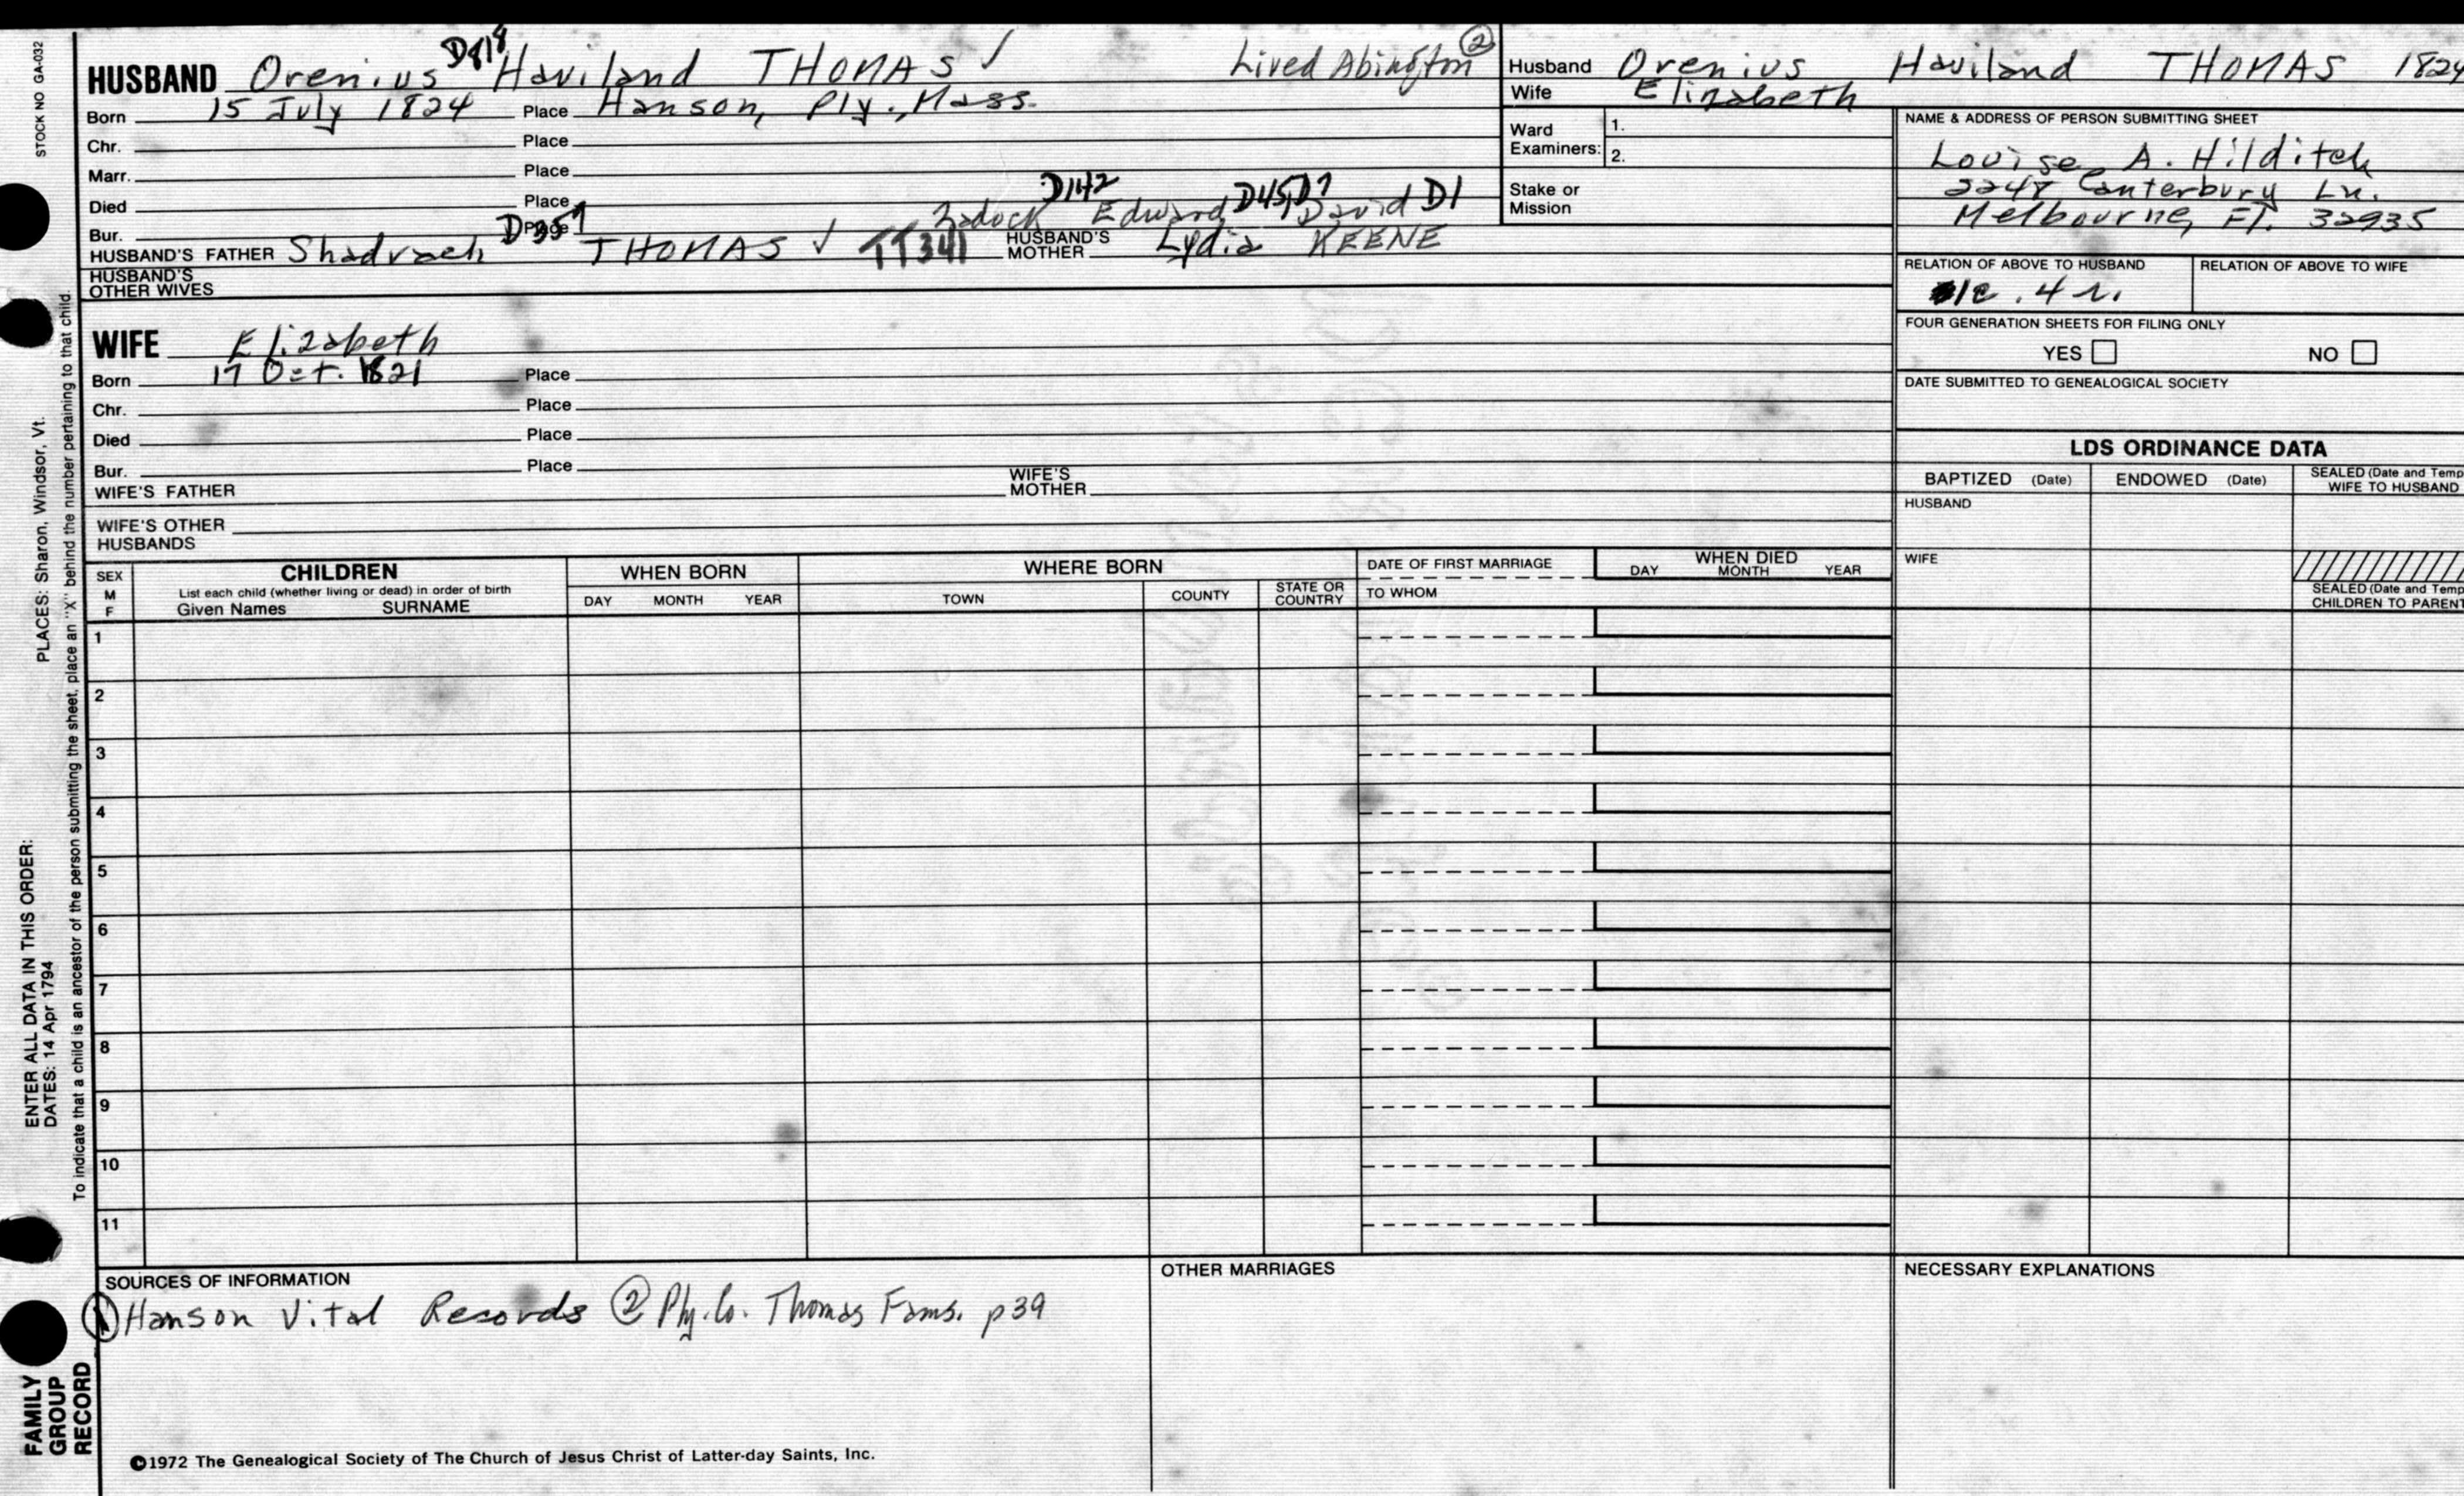 STOCK NO GA-032
HUSBAND Orenius D818 Haviland THOMAS ✓ Lived Abington ②
Born 15 July 1824 Place Hanson, Ply., Mass.
Chr. Place
Marr. Place
Died Place
D142
Zadock Edward D45, David D1
Bur. Place
D357
HUSBAND'S FATHER Shadrach THOMAS ✓ TT341 HUSBAND'S MOTHER Lydia KEENE
HUSBAND'S OTHER WIVES
WIFE Elizabeth
Born 17 Oct. 1821 Place
Chr. Place
Died Place
Bur. Place
WIFE'S FATHER WIFE'S MOTHER
WIFE'S OTHER HUSBANDS
Husband Orenius Haviland THOMAS 1824
Wife Elizabeth
Ward Examiners: 1.
2.
Stake or Mission
NAME & ADDRESS OF PERSON SUBMITTING SHEET
Louise A. Hilditch
2248 Canterbury Ln.
Melbourne, Fl. 32935
RELATION OF ABOVE TO HUSBAND RELATION OF ABOVE TO WIFE
1c. 4 r.
FOUR GENERATION SHEETS FOR FILING ONLY
YES NO
DATE SUBMITTED TO GENEALOGICAL SOCIETY
LDS ORDINANCE DATA
BAPTIZED (Date) ENDOWED (Date) SEALED (Date and Temp
WIFE TO HUSBAND
HUSBAND
WIFE
SEALED (Date and Temp
CHILDREN TO PARENT
SEX
M
F
CHILDREN
List each child (whether living or dead) in order of birth
Given Names SURNAME
WHEN BORN
DAY MONTH YEAR
WHERE BORN
TOWN COUNTY STATE OR COUNTRY
DATE OF FIRST MARRIAGE
TO WHOM
WHEN DIED
DAY MONTH YEAR
1
2
3
4
5
6
7
8
9
10
11
SOURCES OF INFORMATION
① Hanson Vital Records ② Ply. Co. Thomas Fams. p 39
OTHER MARRIAGES
NECESSARY EXPLANATIONS
©1972 The Genealogical Society of The Church of Jesus Christ of Latter-day Saints, Inc.
FAMILY
GROUP
RECORD
ENTER ALL DATA IN THIS ORDER:
DATES: 14 Apr 1794
PLACES: Sharon, Windsor, Vt.
To indicate that a child is an ancestor of the person submitting the sheet, place an "X" behind the number pertaining to that child.